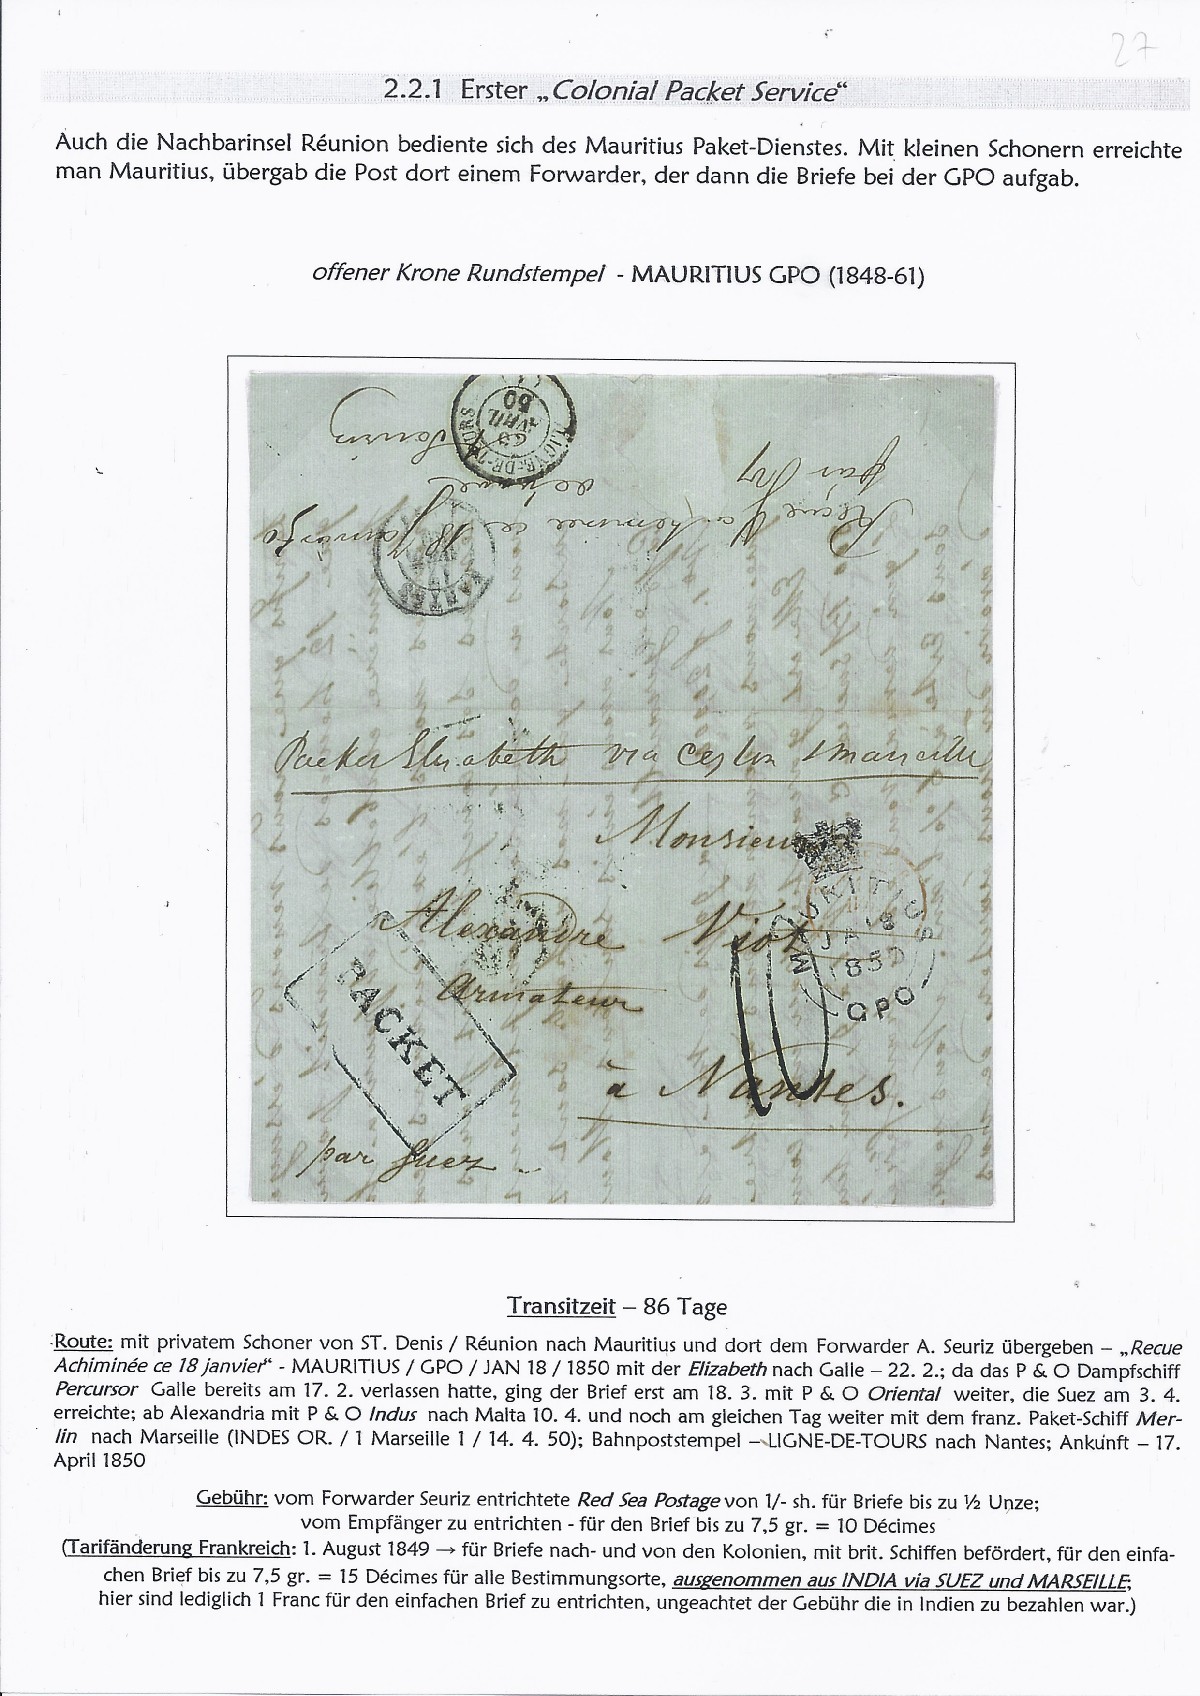 27
2.2.1 Erster „Colonial Packet Service“
Auch die Nachbarinsel Réunion bediente sich des Mauritius Paket-Dienstes. Mit kleinen Schonern erreichte
man Mauritius, übergab die Post dort einem Forwarder, der dann die Briefe bei der GPO aufgab.
offener Krone Rundstempel - MAURITIUS GPO (1848-61)
AVRIL
50
LIGNE-DE-TOURS
ce 18
par
Packet Elisabeth via Ceylon & Marseille
Monsieur
Alexandre Viot
Armateur
à Nantes.
par Suez
PACKET
10
MAURITIUS
JA 18
1850
GPO
Transitzeit – 86 Tage
Route: mit privatem Schoner von ST. Denis / Réunion nach Mauritius und dort dem Forwarder A. Seuriz übergeben – „Recue
Achiminée ce 18 janvier“ - MAURITIUS / GPO / JAN 18 / 1850 mit der Elizabeth nach Galle – 22. 2.; da das P & O Dampfschiff
Percursor Galle bereits am 17. 2. verlassen hatte, ging der Brief erst am 18. 3. mit P & O Oriental weiter, die Suez am 3. 4.
erreichte; ab Alexandria mit P & O Indus nach Malta 10. 4. und noch am gleichen Tag weiter mit dem franz. Paket-Schiff Mer-
lin nach Marseille (INDES OR. / 1 Marseille 1 / 14. 4. 50); Bahnpoststempel – LIGNE-DE-TOURS nach Nantes; Ankunft – 17.
April 1850
Gebühr: vom Forwarder Seuriz entrichtete Red Sea Postage von 1/- sh. für Briefe bis zu ½ Unze;
vom Empfänger zu entrichten - für den Brief bis zu 7,5 gr. = 10 Décimes
(Tarifänderung Frankreich: 1. August 1849 → für Briefe nach- und von den Kolonien, mit brit. Schiffen befördert, für den einfa-
chen Brief bis zu 7,5 gr. = 15 Décimes für alle Bestimmungsorte, ausgenommen aus INDIA via SUEZ und MARSEILLE;
hier sind lediglich 1 Franc für den einfachen Brief zu entrichten, ungeachtet der Gebühr die in Indien zu bezahlen war.)